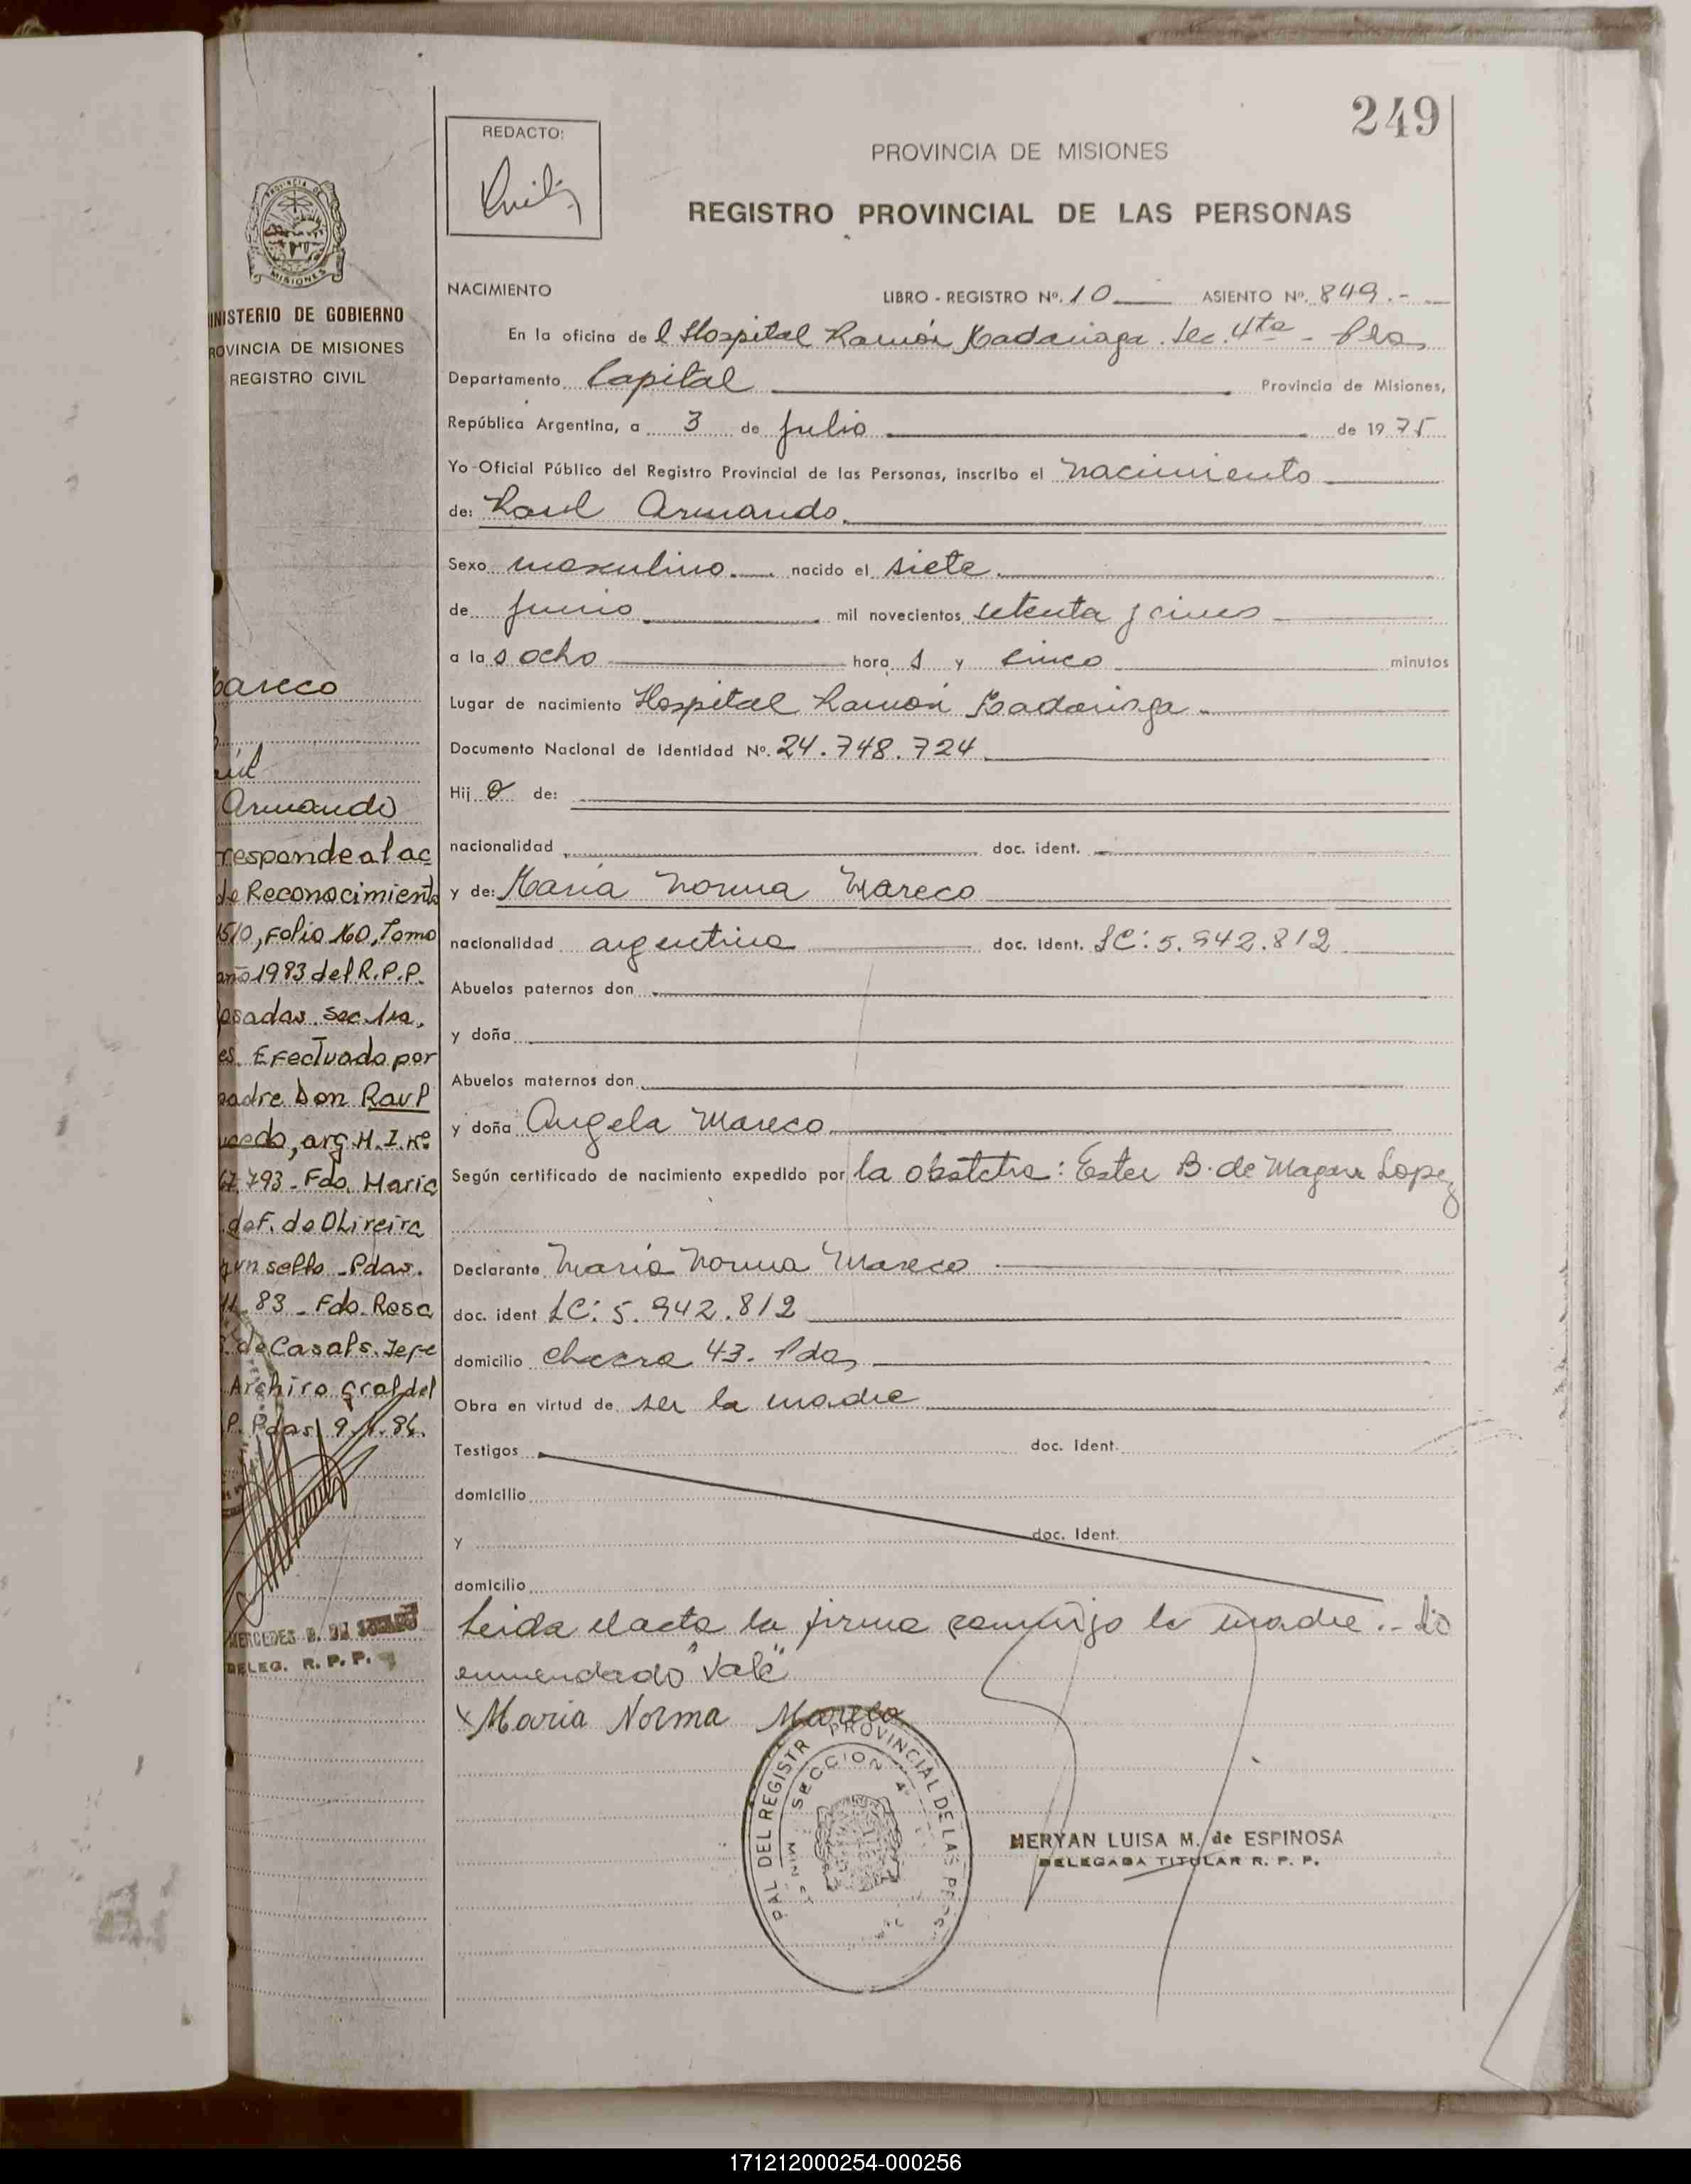 249
REDACTO:
PROVINCIA DE MISIONES
REGISTRO PROVINCIAL DE LAS PERSONAS
PROVINCIA DE
MISIONES
INISTERIO DE GOBIERNO
ROVINCIA DE MISIONES
REGISTRO CIVIL
areco
aúl
Armando
responde al ac
de Reconocimiento
1510, Folio 160, Tomo
año 1983 del R.P.P.
osadas. Sec. 1ra.
es. Efectuado por
padre Don Raul
cedo, arg. M. I. Nº
67.793 - Fdo. Maria
de F. de Olireira
un sello - Pdas.
11. 83 - Fdo. Rosa
de Casals. Jefe
Archivo Gral del
P. Pdas 9.1.84.
MERCEDES B. DE
DELEG. R. P. P.
NACIMIENTO LIBRO - REGISTRO Nº. 10 ASIENTO Nº. 849.-
En la oficina de l Hospital Ramón Madariaga. Sec. 4ta - Pdas
Departamento Capital Provincia de Misiones,
República Argentina, a 3 de julio de 1975
Yo Oficial Público del Registro Provincial de las Personas, inscribo el nacimiento
de: Raul Armando
Sexo masculino nacido el siete
de junio mil novecientos setenta y cinco
a la s ocho hora s y cinco minutos
Lugar de nacimiento Hospital Ramón Madariaga
Documento Nacional de Identidad Nº. 24.748.724
Hij o de:
nacionalidad doc. ident.
y de: Maria Norma Mareco
nacionalidad argentina doc. ident. LC: 5.942.812
Abuelos paternos don
y doña
Abuelos maternos don
y doña Angela Mareco
Según certificado de nacimiento expedido por la obstetra: Ester B. de Lopez
Declarante Maria Norma Mareco
doc. ident LC: 5.942.812
domicilio chacra 43. Pdas
Obra en virtud de ser la madre
Testigos doc. ident.
domicilio
y doc. ident.
domicilio
Leida el acta la firma conmigo la madre.-
enmendado "Vale"
x Maria Norma Mareco
PAL DEL REGISTR PROVINCIAL DE LAS PERS
SECCION 4
MERYAN LUISA M. de ESPINOSA
DELEGADA TITULAR R. P. P.
171212000254-000256